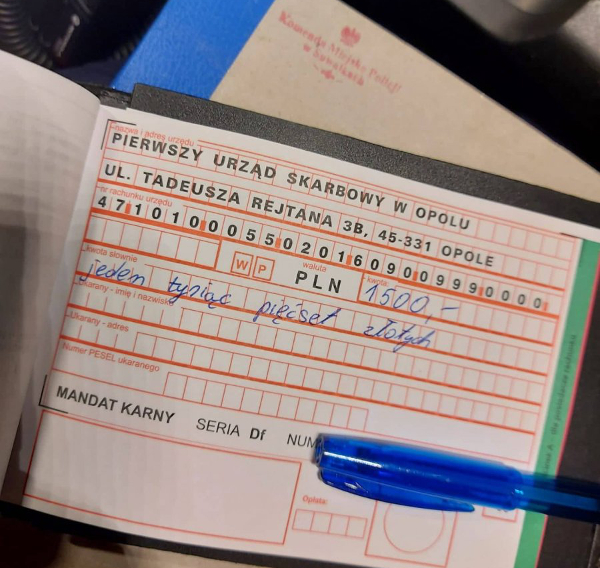 Komenda Miejska Policji
w Suwałkach
nazwa i adres urzędu
PIERWSZY URZĄD SKARBOWY W OPOLU
UL. TADEUSZA REJTANA 3B, 45-331 OPOLE
nr rachunku urzędu
47101000550201609099900000
WP
waluta
PLN
kwota
1500,-
kwota słownie
jeden tysiąc pięćset złotych
ukarany - imię i nazwisko
Ukarany - adres
Numer PESEL ukaranego
MANDAT KARNY SERIA Df NUM
Opłata: